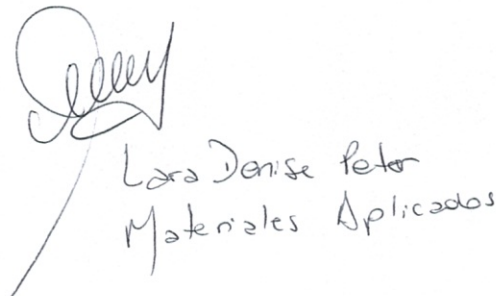 Lara Denise Peter
Materiales Aplicados